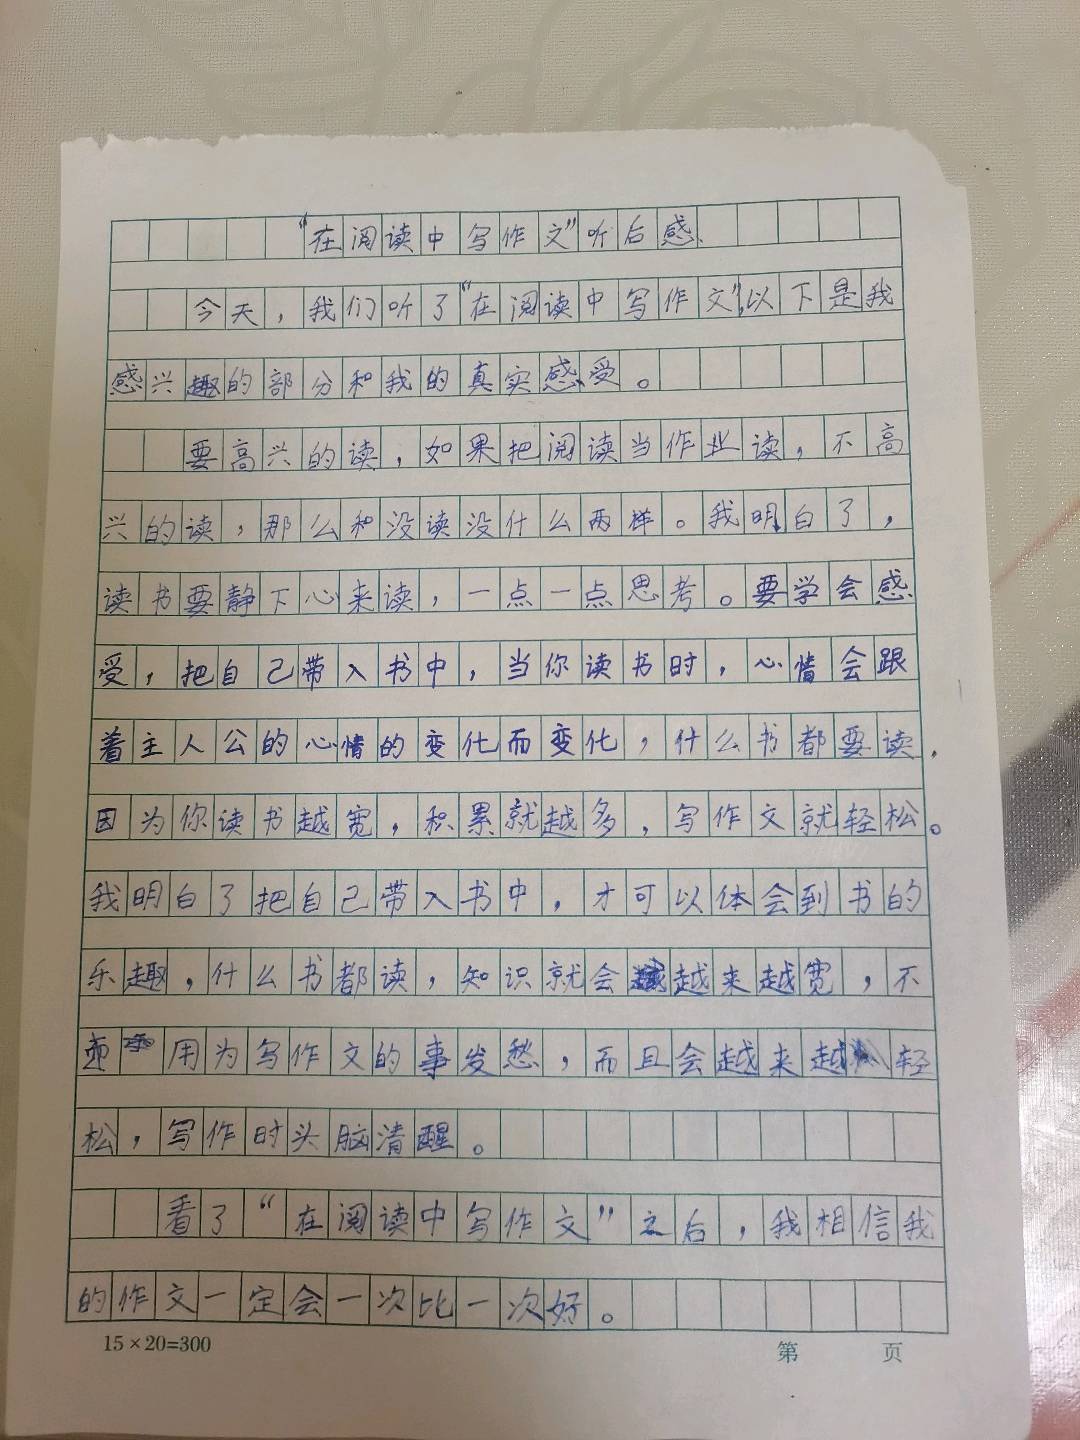 “在阅读中写作文”听后感
今天，我们听了“在阅读中写作文”，以下是我
感兴趣的部分和我的真实感受。
要高兴的读，如果把阅读当作业读，不高
兴的读，那么和没读没什么两样。我明白了，
读书要静下心来读，一点一点思考。要学会感
受，把自己带入书中，当你读书时，心情会跟
着主人公的心情的变化而变化，什么书都要读，
因为你读书越宽，积累就越多，写作文就轻松。
我明白了把自己带入书中，才可以体会到书的
乐趣，什么书都读，知识就会越来越宽，不
用为写作文的事发愁，而且会越来越轻
松，写作时头脑清醒。
看了“在阅读中写作文”之后，我相信我
的作文一定会一次比一次好。
15×20=300
第 页